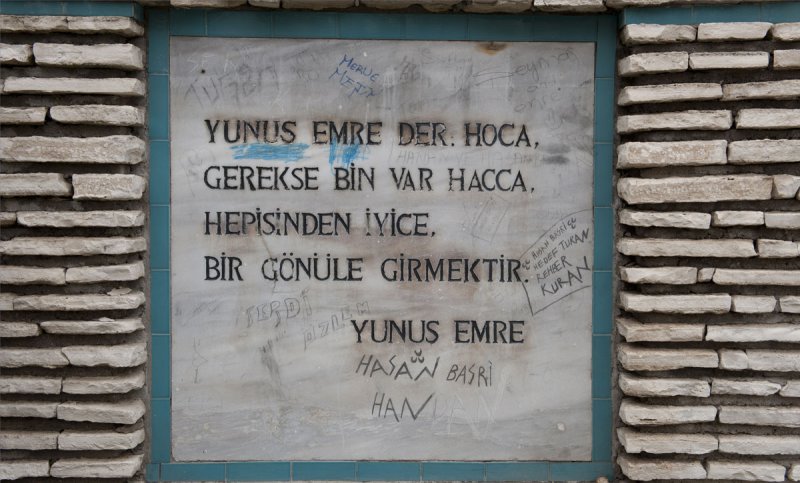 MERVE
MERT
YUNUS EMRE DER. HOCA,
GEREKSE BİN VAR HACCA,
HEPİSİNDEN İYİCE,
BİR GÖNÜLE GİRMEKTİR.
HASAN BASRİ
HEDEF TURAN
REHBER
KURAN
FERDİ
YUNUS EMRE
HASAN BASRİ
HAN